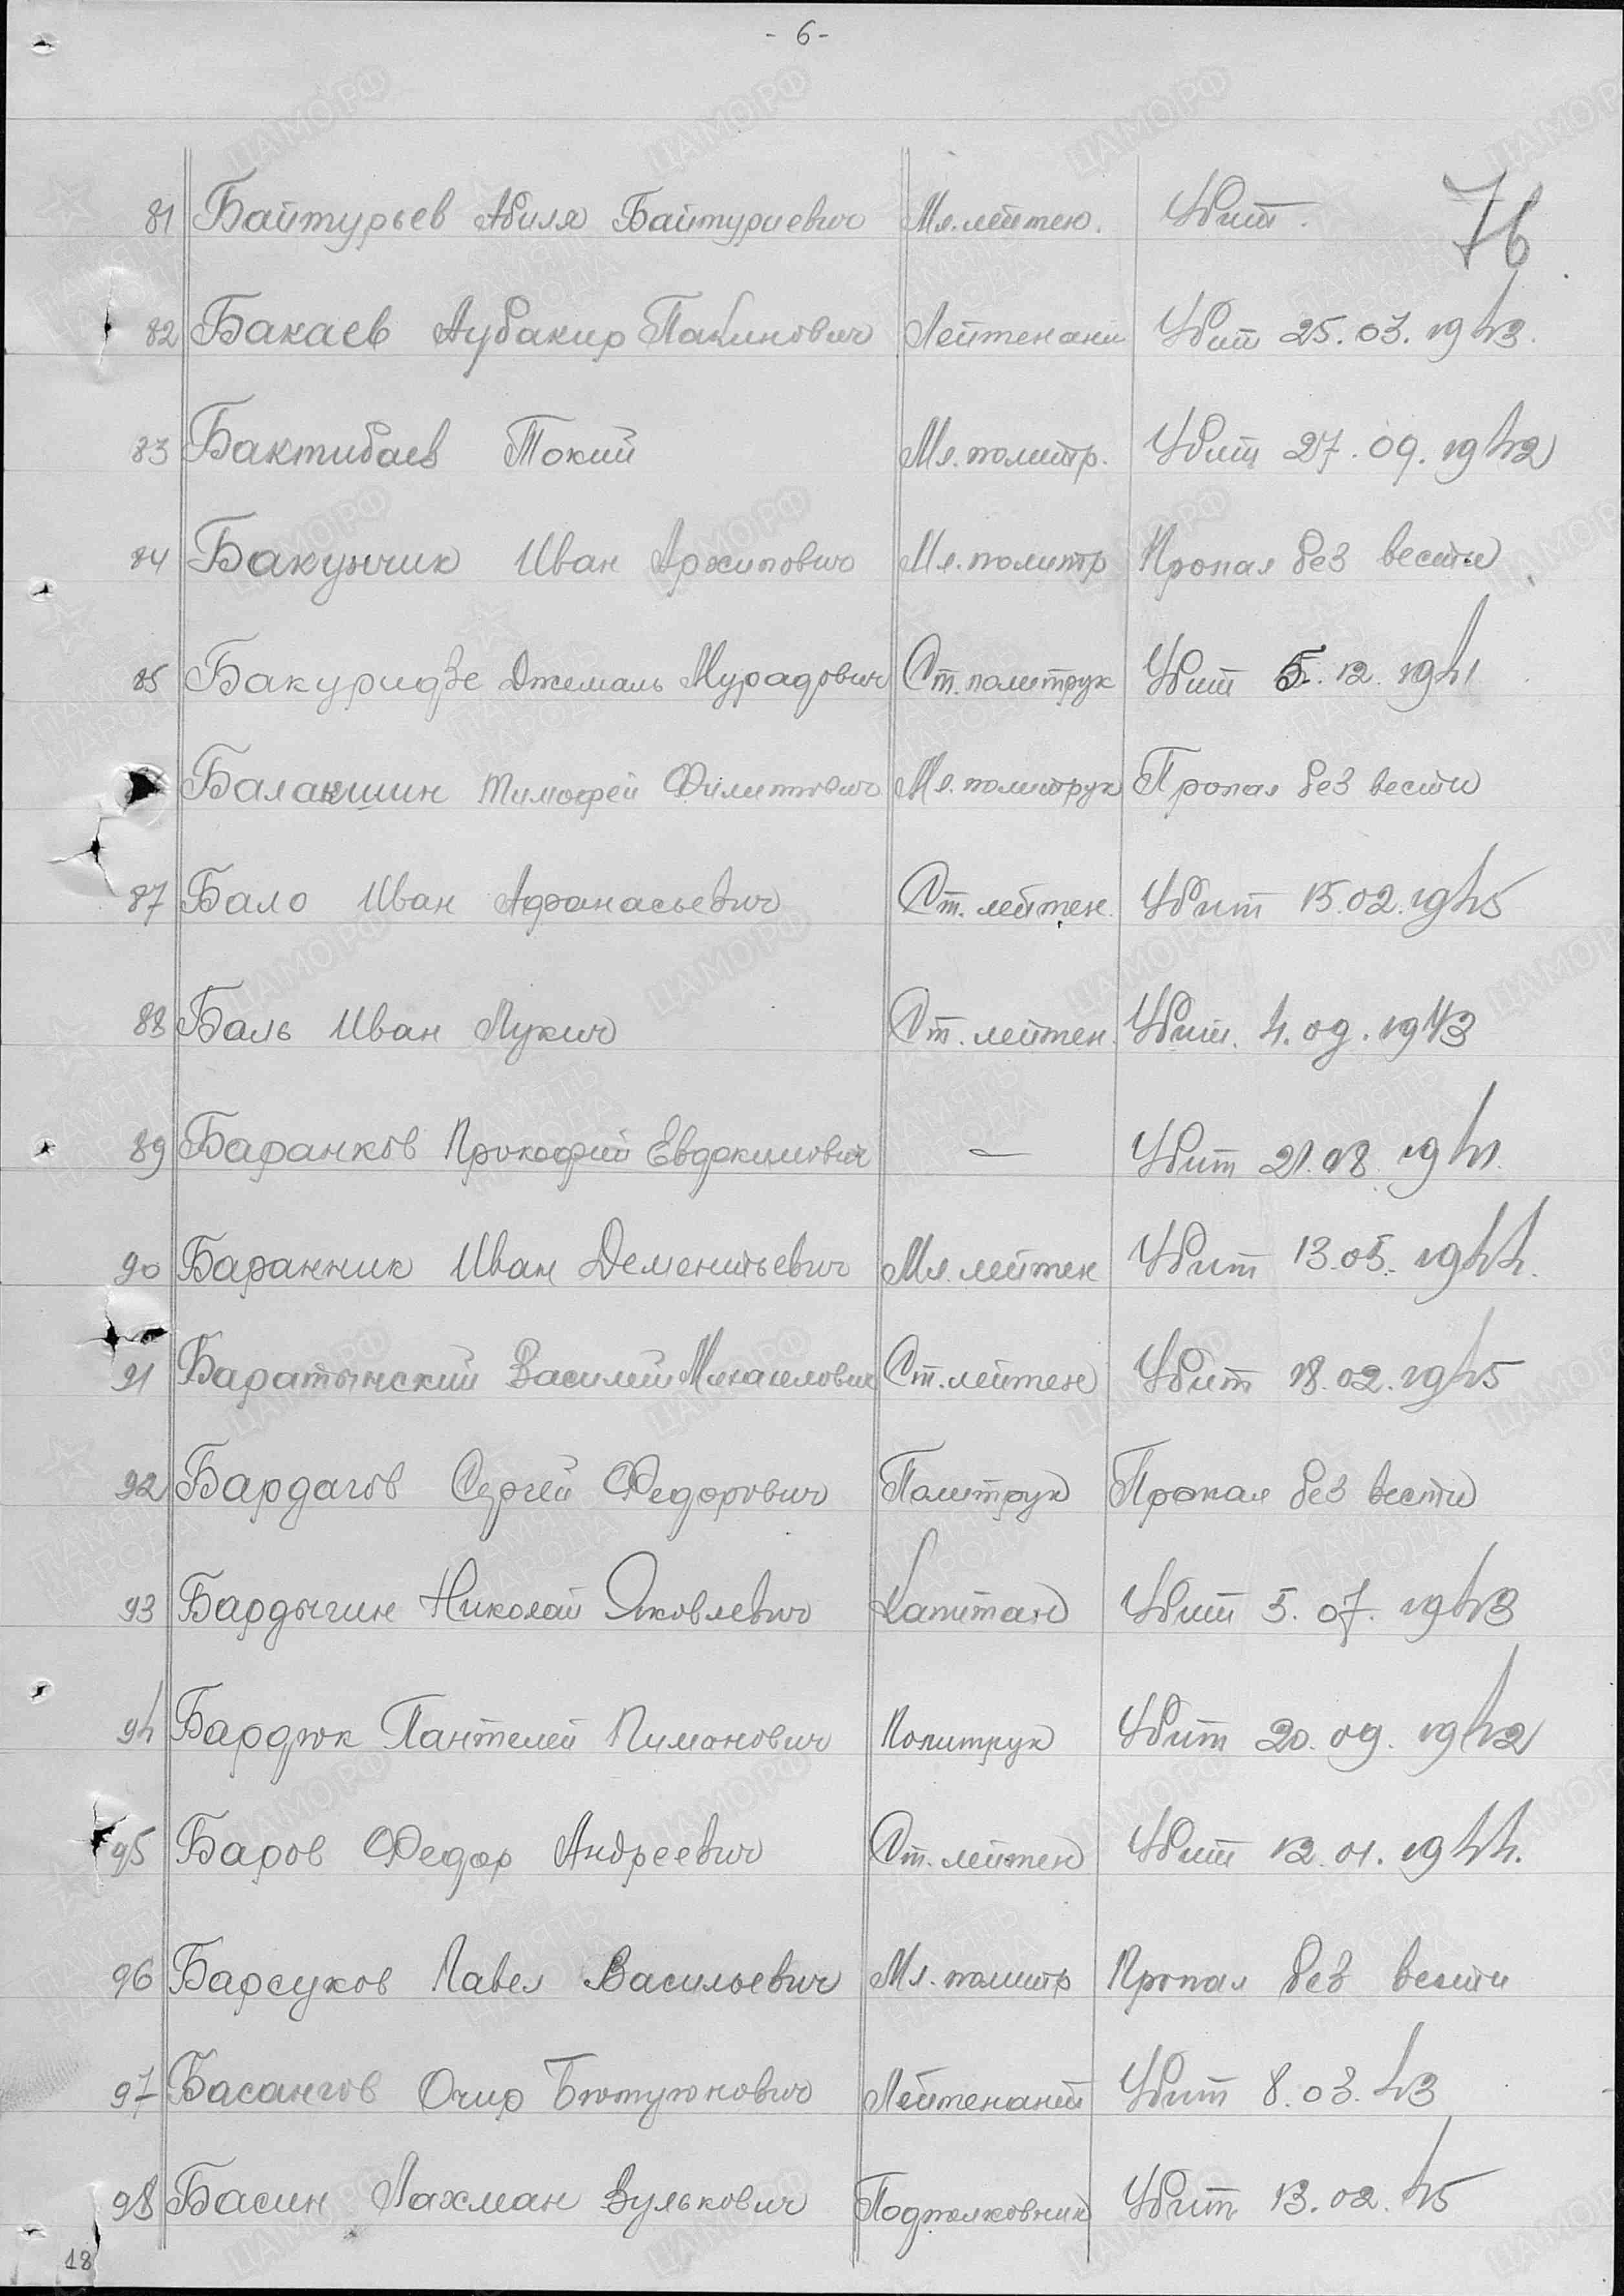 - 6 -
76
81 Байтурьев Абиля Байтуриевич Мл. лейтен. Убит.
82 Бакаев Аубакир Пакинович Лейтенант Убит 25.03.1943.
83 Бактибаев Токий Мл. политр. Убит 27.09.1942
84 Бакунчик Иван Архипович Мл. политр Пропал без вести
85 Бакуридзе Джемаль Мурадович Ст. политрук Убит 5.12.1941
Балакшин Тимофей Филиппович Мл. политрук Пропал без вести
87 Бало Иван Афанасьевич Ст. лейтен. Убит 15.02.1945
88 Баль Иван Лукич Ст. лейтен. Убит. 4.09.1943
89 Баранков Прокофий Евдокимович — Убит 21.08.1941.
90 Баранник Иван Дементьевич Мл. лейтен Убит 13.05.1944.
91 Баратынский Василий Михаилович Ст. лейтен Убит 18.02.1945
92 Бардагов Сергей Федорович Политрук Пропал без вести
93 Бардыгин Николай Яковлевич Капитан Убит 5.07.1943
94 Бардюк Пантелей Пиманович Политрук Убит 20.09.1942
95 Баров Федор Андреевич Ст. лейтен Убит 12.01.1944.
96 Барсуков Павел Васильевич Мл. политр Пропал без вести
97 Басангов Очир Бютуюнович Лейтенант Убит 8.03.43
98 Басин Лахман Вулькович Подполковник Убит 13.02.45
18